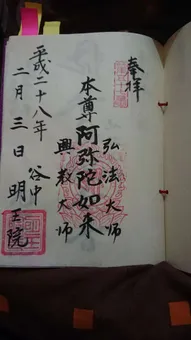 奉拝
弘法大师
本尊阿弥陀如来
興教大师
平成二十八年
二月三日
谷中
明王院